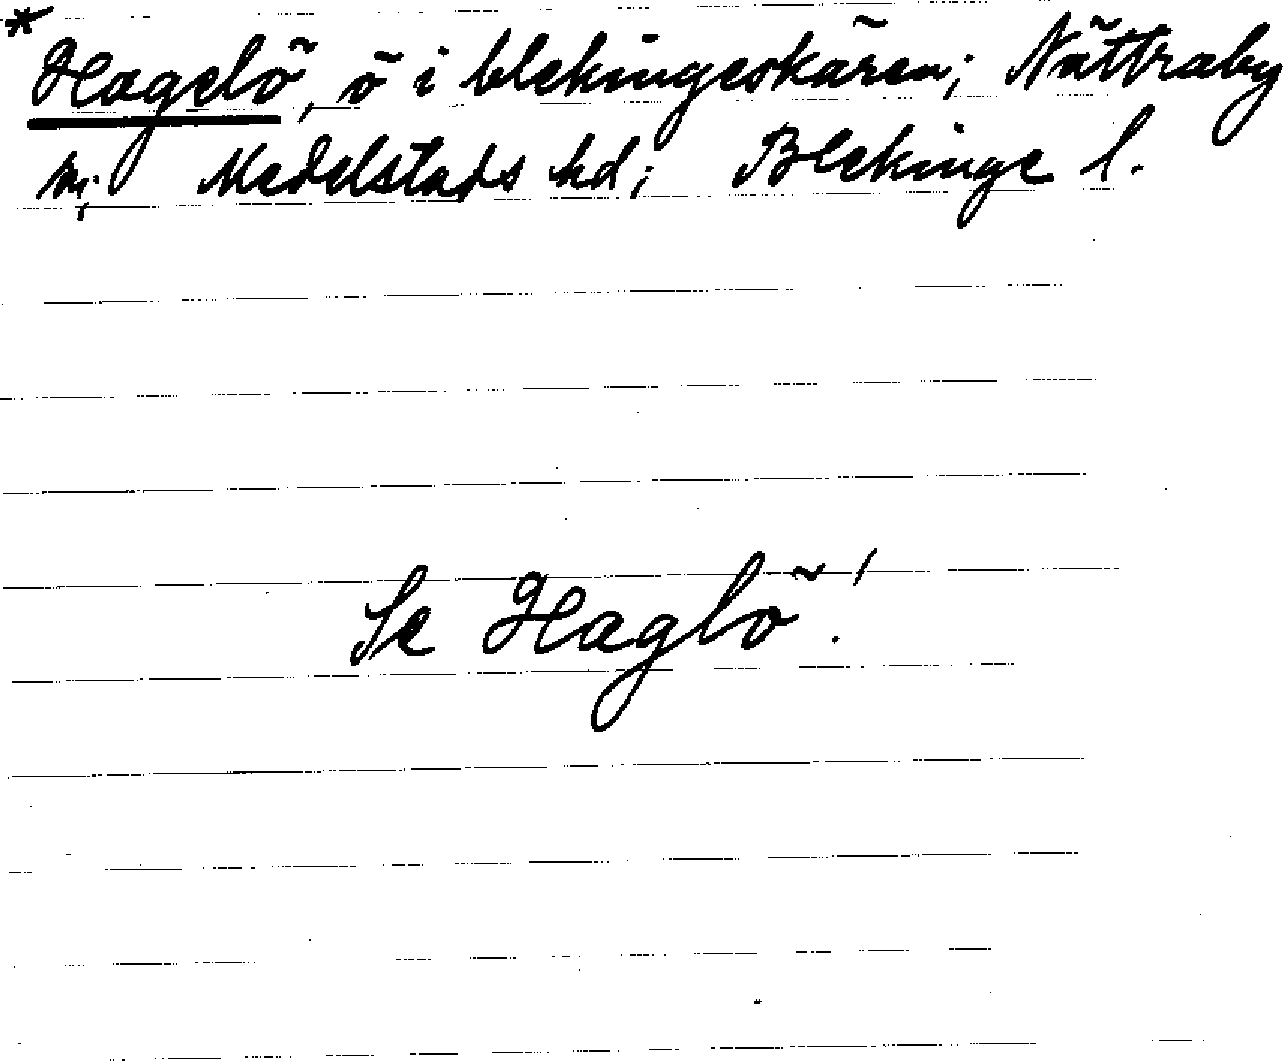 *
Hagelö, ö i blekingeskären; Nättraby
m; Medelstads hd; Blekinge l.
Se Haglö!